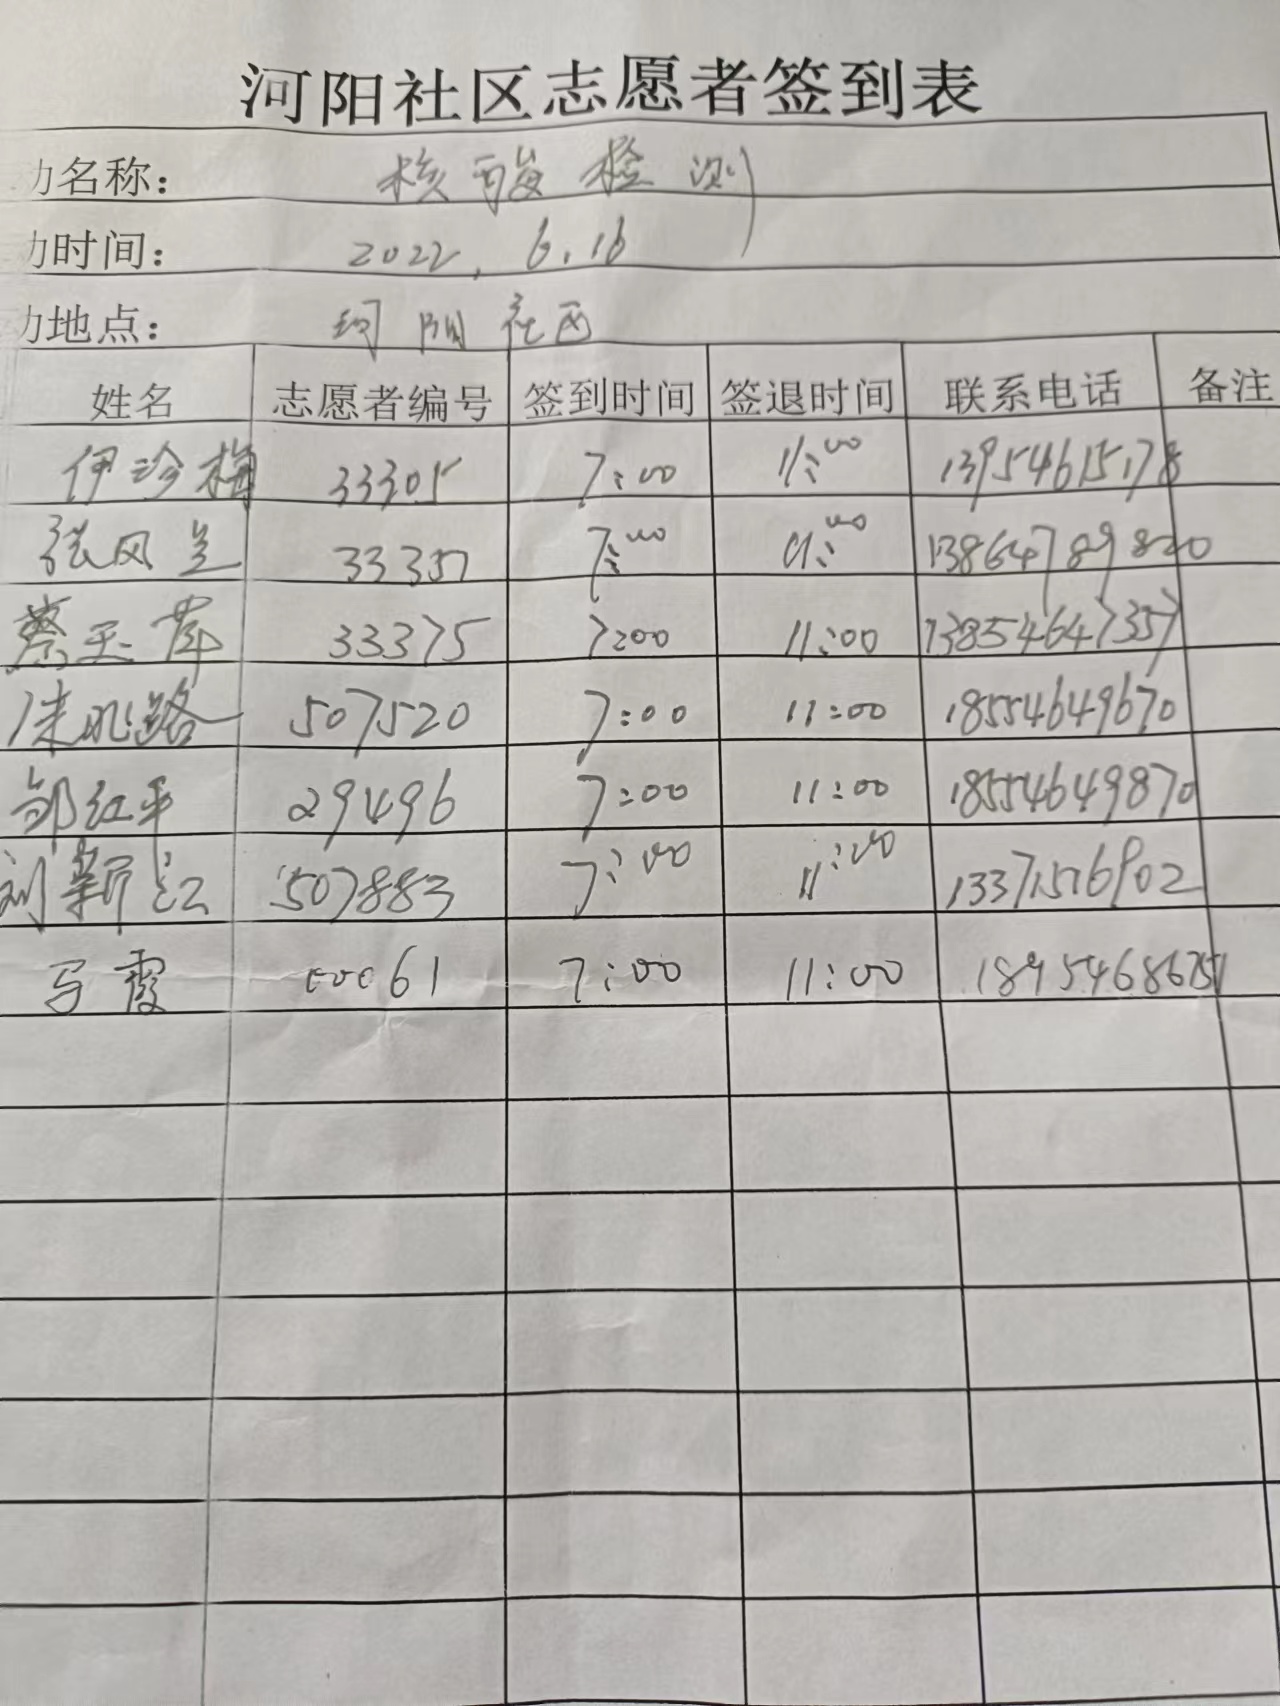 河阳社区志愿者签到表
动名称： 核酸检测
动时间： 2022.6.16
动地点： 河阳社区
姓名 志愿者编号 签到时间 签退时间 联系电话 备注
伊珍梅 33305 7:00 11:00 13954615178
张风兰 33357 7:00 11:00 13864789820
蔡玉萍 33375 7:00 11:00 13854647357
507520 7:00 11:00 18554649670
邹红平 29496 7:00 11:00 18554649870
刘新江 507883 7:00 11:00 13371516902
马霞 00061 7:00 11:00 18954686751